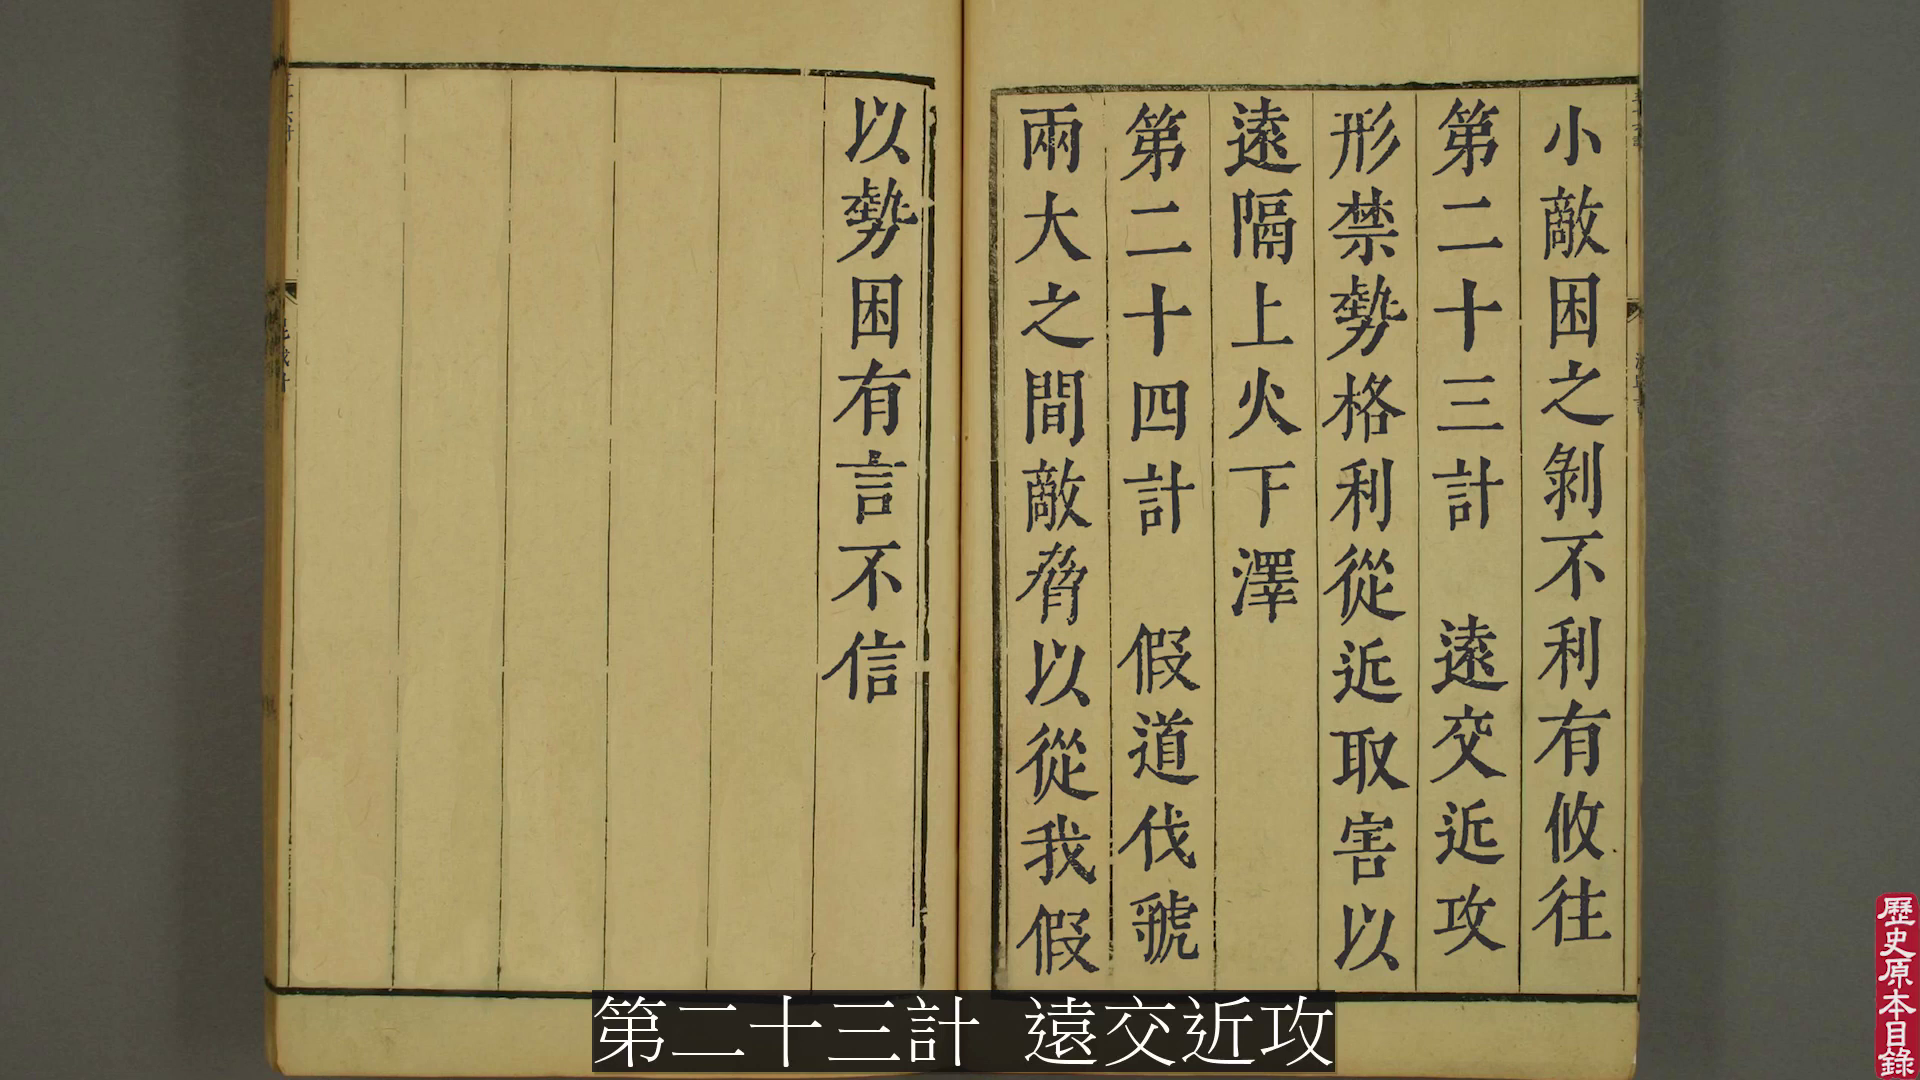 小敵困之剝不利有攸往
第二十三計 遠交近攻
形禁勢格利從近取害以
遠隔上火下澤
第二十四計 假道伐虢
兩大之間敵脅以從我假
以勢困有言不信
第二十三計 遠交近攻
歷史原本目錄